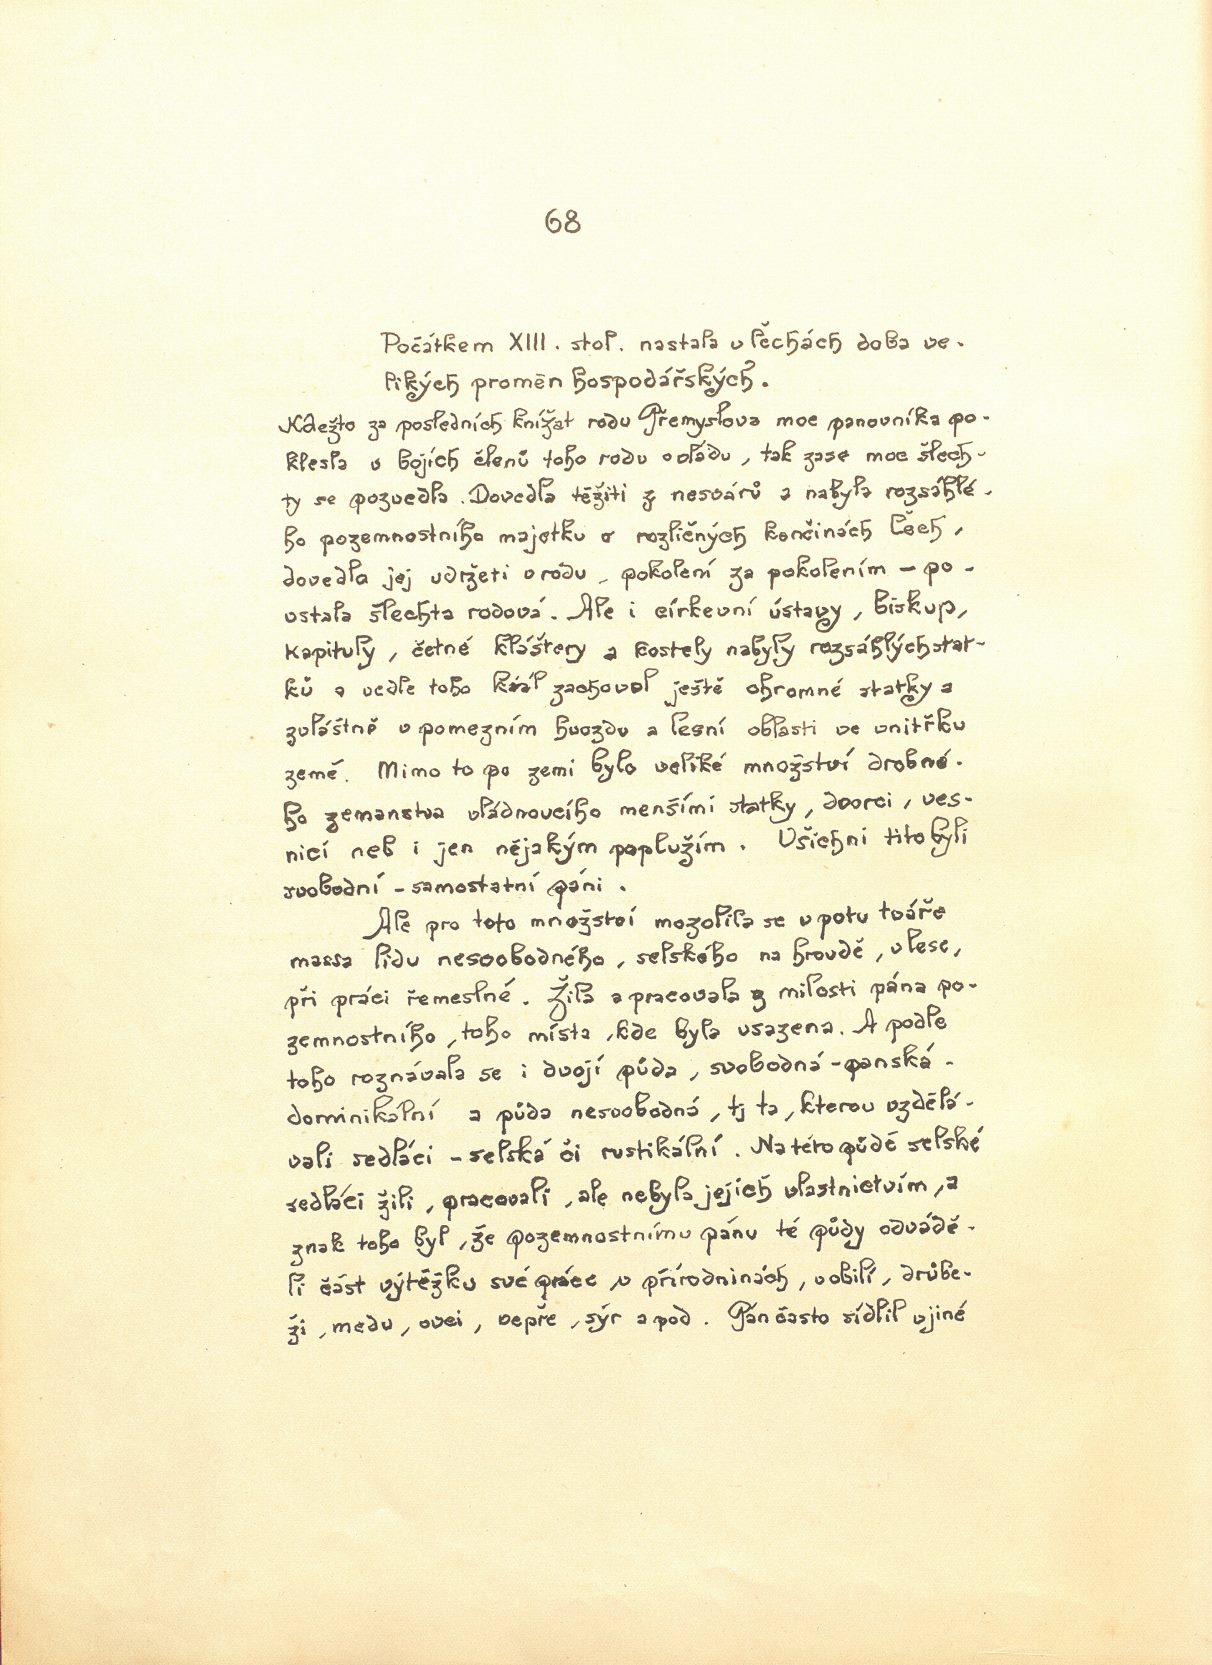 68
Počátkem XIII. stol. nastala v Čechách doba ve-
likých proměn hospodářských.
Kdežto za posledních knížat rodu Přemyslova moc panovníka po-
klesla v bojích členů toho rodu o vládu, tak zase moc šlech-
ty se pozvedla. Dovedla těžiti z nesvárů a nabyla rozsáhlé-
ho pozemnostního majetku v rozličných končinách Čech,
dovedla jej udržeti v rodu, pokolení za pokolením - po-
vstala šlechta rodová. Ale i církevní ústavy, biskup,
kapituly, četné kláštery a kostely nabyly rozsáhlých stat-
ků a vedle toho král zachoval ještě ohromné statky a
zvláštně v pomezním hvozdu a lesní oblasti ve vnitřku
země. Mimo to po zemi bylo veliké množství drobné-
ho zemanstva vládnoucího menšími statky, dvorci, ves-
nicí neb i jen nějakým poplužím. Všichni tito byli
svobodní - samostatní páni.
Ale pro toto množství mozolila se v potu tváře
massa lidu nesvobodného, selského na hroudě, v lese,
při práci řemeslné. Žila a pracovala z milosti pána po-
zemnostního, toho místa, kde byla usazena. A podle
toho roznávala se i dvojí půda, svobodná - panská -
dominikální a půda nesvobodná, tj ta, kterou vzdělá-
vali sedláci - selská či rustikální. Na této půdě selské
sedláci žili, pracovali, ale nebyla jejich vlastnictvím, a
znak toho byl, že pozemnostnímu pánu té půdy odvádě-
li část výtěžku své práce, v přírodninách, v obilí, drůbe-
ži, medu, ovci, vepře, sýr a pod. Pán často sídlil v jiné